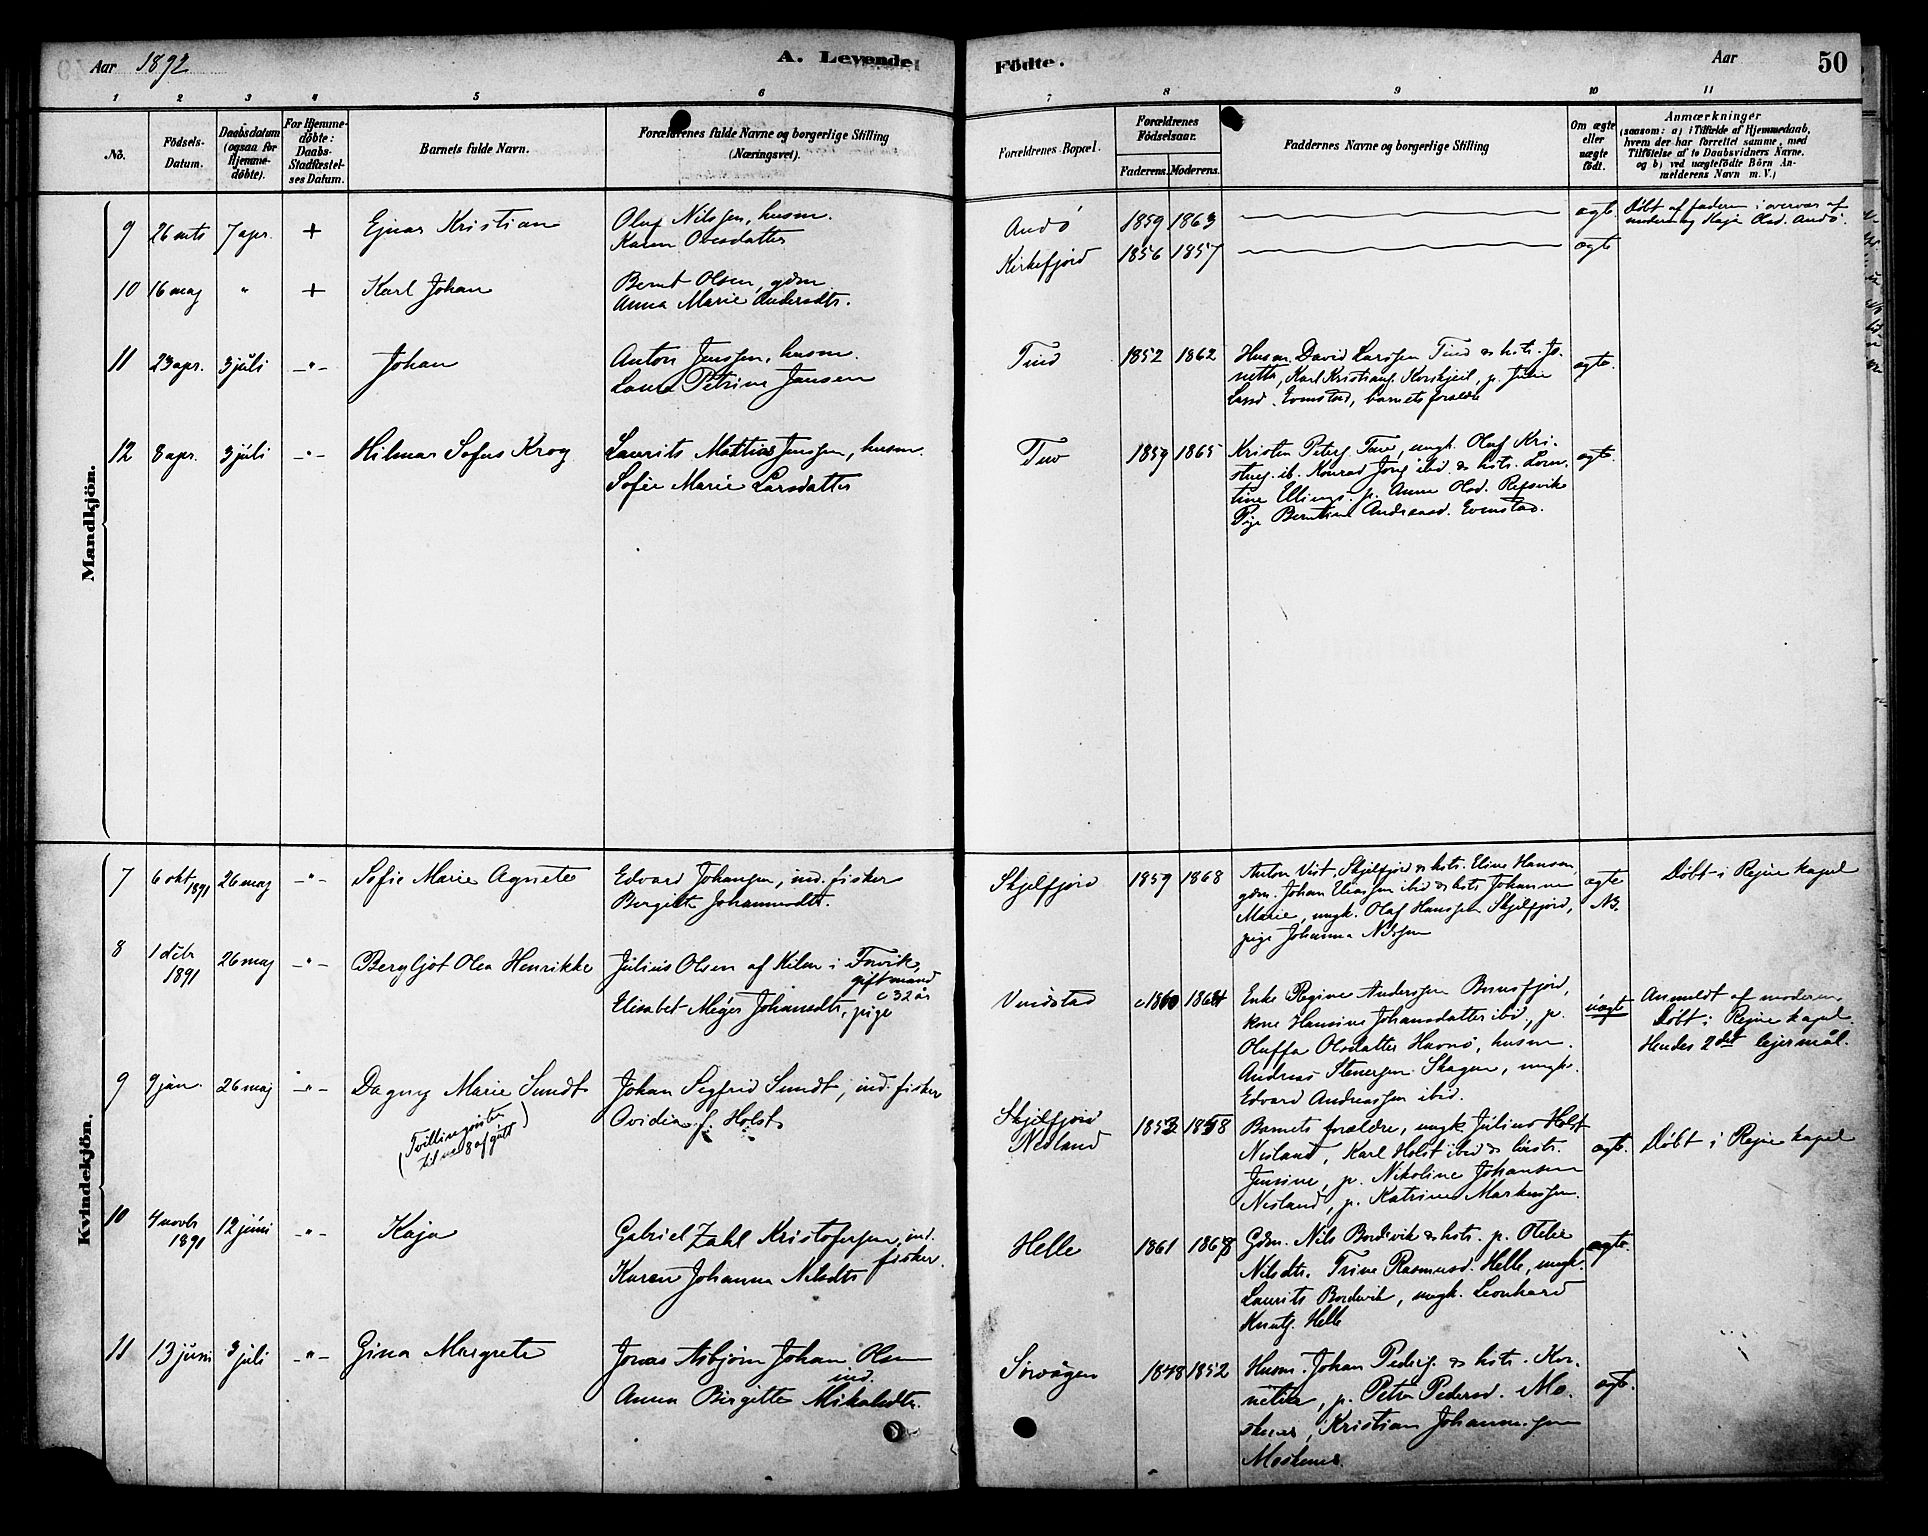 Aar 1892
A. Levende
Födte.
Aar
50
1
2
3
4
5
6
7
8
9
10
11
No.
Födsels-
Datum.
Daabsdatum
(ogsaa for
Hjemme-
döbte).
For Hjemme-
döbte:
Daabs-
Stadfæstel-
ses Datum.
Barnets fulde Navn.
Forældrenes fulde Navne og borgerlige Stilling
(Næringsvei).
Forældrenes Bopæl.
Forældrenes
Födselsaar.
Faderens.
Moderens.
Faddernes Navne og borgerlige Stilling
Om ægte
eller
uægte
födt.
Anmærkninger
(saasom: a) i Tilfælde af Hjemmedaab,
hvem der har forrettet samme, med
Tilföielse af to Daabsvidners Navne,
og b) ved uægtefödte Börn An-
melderens Navn m. V.)
Mandkjön.
9 26 mts 7 apr. + Ejnar Kristian
Oluf Nilssen, husm.
Karen Ovesdatter
Andö 1859 1863 ægte
Döbt af faderen i overvær af
moderen og Kaja Olsd. Andö.
10 16 maj " + Karl Johan
Bernt Olsen, gdm
Anna Marie Andersdtr.
Kirkefjord 1856 1857 ægte
11 23 apr. 3 juli -"- Johan
Anton Jenssen, husm.
Laura Petrine Jansen
Tind 1852 1862
Husm. David Larssen Tind & hstr. Jo-
netta, Karl Kristians. , p. Julie
Larsd. Evenstad, barnets forældre
ægte.
12 8 apr. 3 juli -"- Hilmar Sofus Krog
Laurits Mattias Jenssen, husm.
Sofie Marie Larsdatter
Tind 1859 1865
Kristen Peters. Tind, ungk. Oluf Kri-
stens. ib. Konrad Jens. ibid. & hstr. Lorn-
tine Ellings. p. Anne Olsd. Refsvik
Pige Berntine Andreasd. Evenstad.
ægte.
Kvindekjön.
7 6 okt 1891 26 maj -"- Sofie Marie Agnete
Edvard Johansen, ind. fisker
Birgitte Johannesdtr.
Skjelfjord 1859 1868
Anton Vist, Skjelfjord & hstr. Eline Hansen,
gdm. Johan Eliassen ibid & hstr. Johanne
Marie, ungk. Olaf Hanssen Skjelfjord,
pige Johanna Nilssen
ægte
NB.
Döbt i Rejne kapel
8 1 debr 1891 26 maj -"- Bergljot Olea Henrikke
Julius Olsen af Kilen i Torvik,
gift mand
c 32 år
Elisabet Mejer Johansdtr, pige
Vindstad c1860 1864
Enke Regine Anderssen Bunesfjord,
kone Hansine Johansdatter ibid, p.
Oluffa Olsdatter Havnö, husm.
Andreas Stenersen Skagen, ungk.
Edvard Andreassen ibid.
uægte
Anmeldt af moderen,
Döbt i Rejne kapel.
Hendes 2det lejermål.
9 9 jan. 26 maj -"- Dagny Marie Sundt
(Tvillingsöster
til no 8 af gutt)
Johan Segfrid Sundt, ind. fisker
Ovidia f. Holst
Skjelfjord
Nesland
1853 1858
Barnets forældre, ungk. Julius Holst
Nesland, Karl Holst ibid & hustr.
Jensine, p. Nikoline Johansen
Nesland, p. Katrine Markussen.
ægte.
Döbt i Rejne kapel
10 4 novbr 1891 12 juni -"- Kaja
Gabriel Zahl Kristofersen, ind.
fisker.
Karen Johanna Nilsdtr
Helle 1861 1868
Gdm. Nils Bordevik & hstr. p. Otelie
Nilsdtr. Trine Rasmusd. Helle, ungk.
Laurits Bordevik, ungk. Leonhard
Knuts. Helle
ægte.
11 13 juni 3 juli -"- Gina Margrete
Jonas Asbjörn Johan Olsen
ind.
Anna Birgitte Mikalsdtr.
Sörvågen 1848 1852
Husm. Johan Peders. & hstr. Kor-
nelia, p. Petra Pedersd. Mo-
skenes, Kristian Johannessen
Moskenes.
ægte.